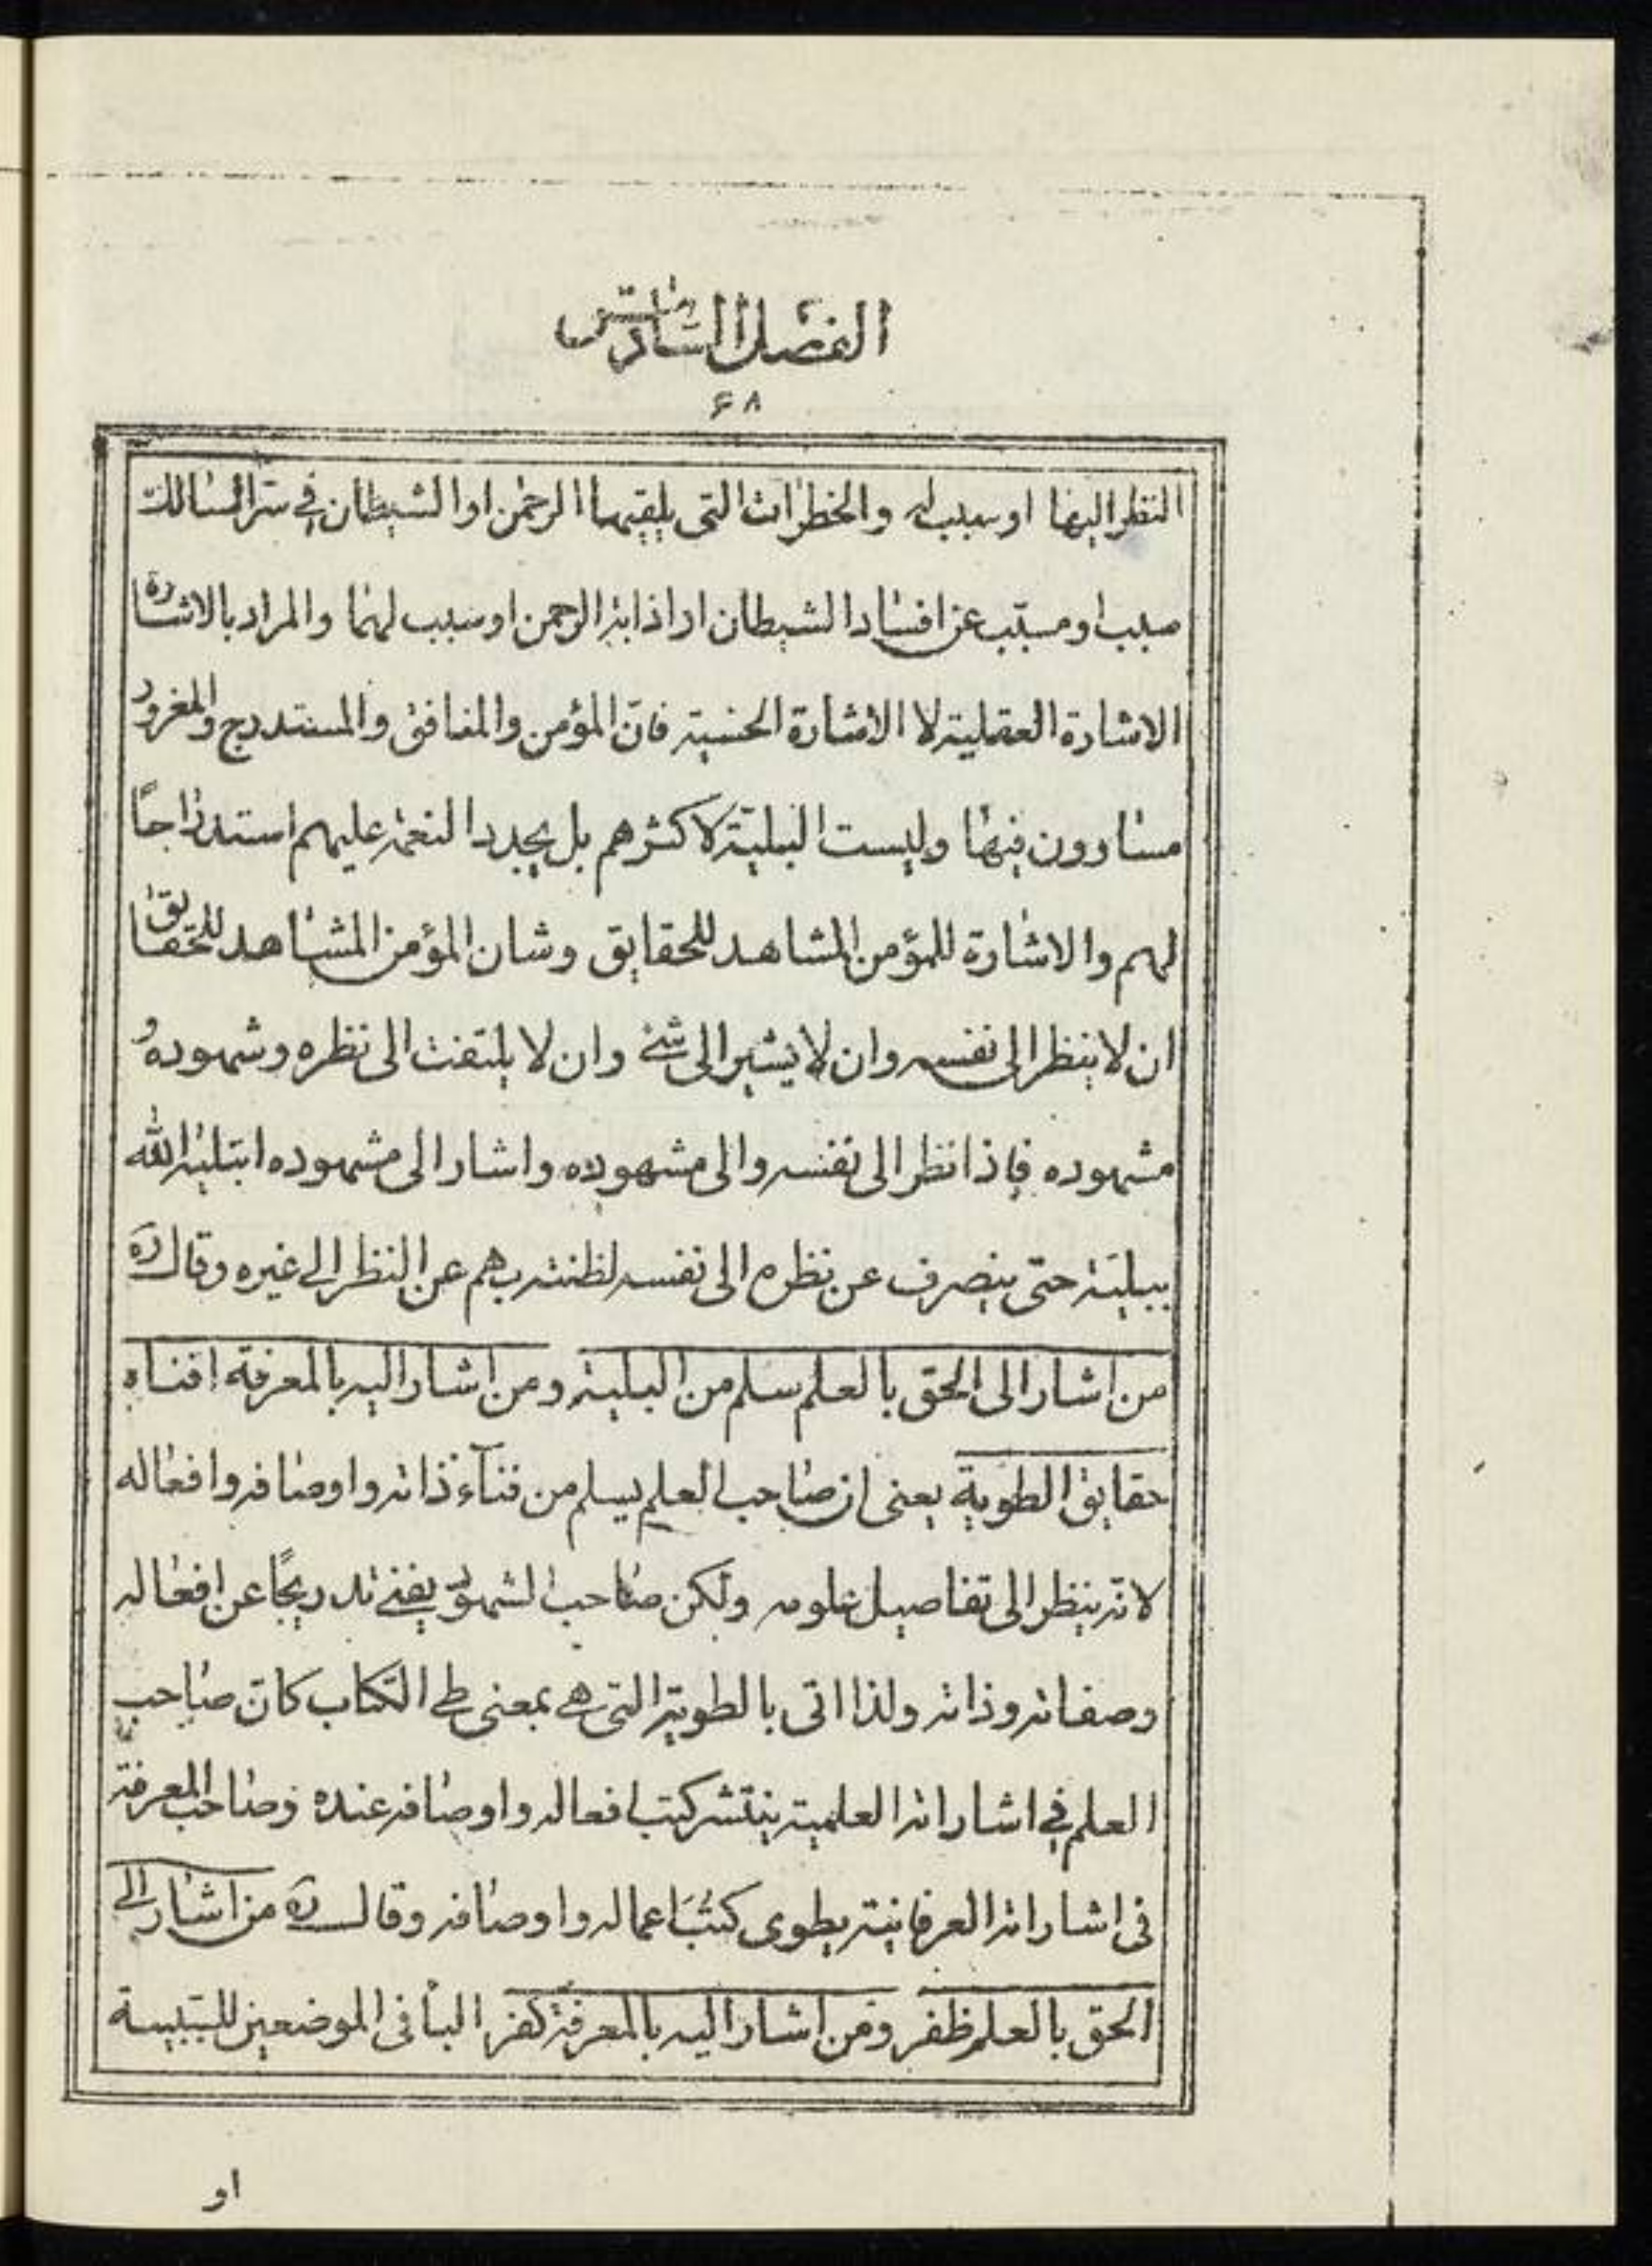 الفصل السادس
۶۸
النظر اليها او سبب له والخطرات التى يلقيها الرحمن او الشيطان فى سر السالك
سبب او مسبّب عن افساد الشيطان او اذابة الرحمن او سبب لهما والمراد بالاشارة
الاشارة العقلية لا الاشارة الحسّية فانّ المؤمن والمنافق والمستدرج والمغرور
مساوون فيها وليست البليّة لاكثرهم بل يجدد النعمة عليهم استدراجًا
لهم والاشارة للمؤمن المشاهد للحقايق وشان المؤمن المشاهد للحقايق
ان لا ينظر الى نفسه وان لا يشير الى شئ وان لا يلتفت الى نظره وشهوده و
مشهوده فاذا نظر الى نفسه والى مشهوده واشار الى مشهوده ابتليه الله
ببليّة حتى ينصرف عن نظره الى نفسه لظنته بهم عن النظر الى غيره وقال ره
من اشار الى الحق بالعلم سلم من البلية ومن اشار اليه بالمعرفة افناه
حقايق الطوية يعنى ان صاحب العلم يسلم من فنآء ذاته واوصافه وافعاله
لانّه ينظر الى تفاصيل علومه ولكن صاحب الشهود يفنى تدريجًا عن افعاله
وصفاته وذاته ولذا اتى بالطويّة التى هى بمعنى طى الكتاب كانّ صاحب
العلم فى اشاراته العلمية ينتشر كتب افعاله واوصافه عنده وصاحب المعرفة
فى اشاراته العرفانية يطوى كتب اعماله واوصافه وقال ره من اشار الى
الحق بالعلم ظفر ومن اشار اليه بالمعرفة كفر البا فى الموضعين للسببية
او